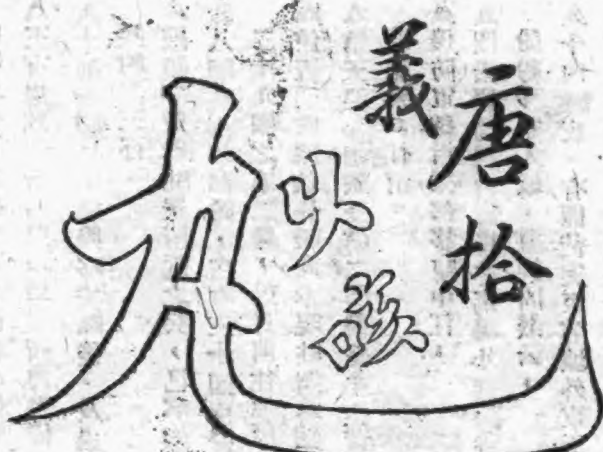 唐拾義
咳
丸